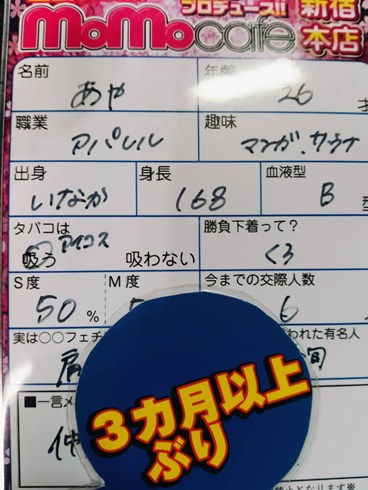 プロデュース!! 新宿
MoMo cafe 本店
名前 年齢
あや 26 才
職業 趣味
アパレル マンガ、サウナ
出身 身長 血液型
いなか 168 B 型
タバコは 勝負下着って?
アイコス
吸う 吸わない くろ
S度 M度 今までの交際人数
50% 6
実は〇〇フェチ われた有名人
肩 旬
■一言メ
3カ月以上
ぶり
となります※